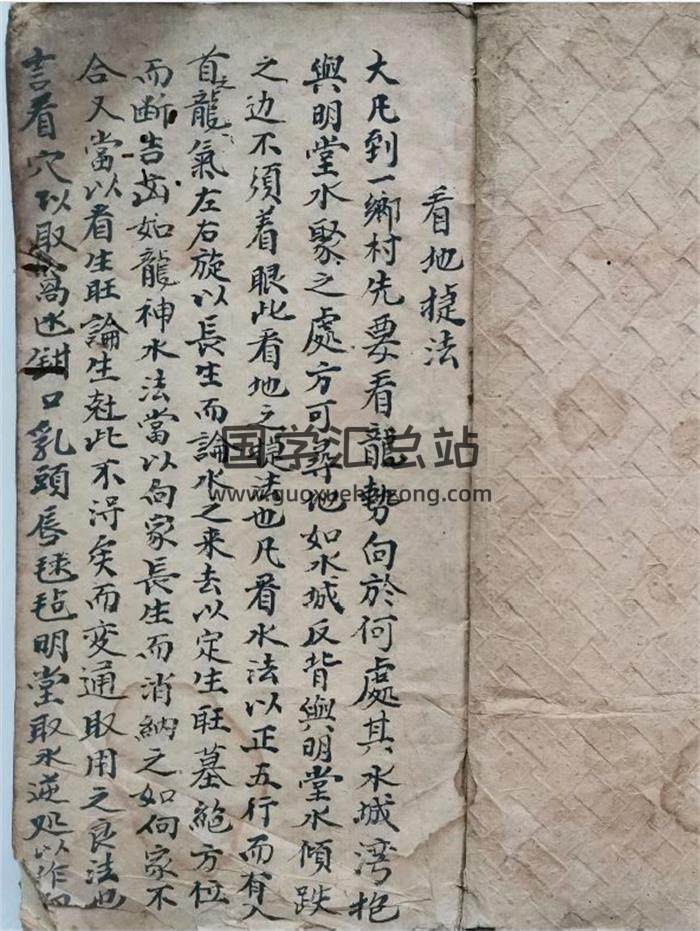 看地捷法
大凡到一鄉村先要看龍勢向於何處其水城湾抱
與明堂水聚之處方可尋地如水城反背與明堂水傾跌
之边不須着眼此看地之捷法也凡看水法以正五行而有入
首之龍氣左右旋以長生而論水之来去以定生旺墓絕方位
而断吉凶如龍神水法當以向家長生而消納之如向家不
合又當以看生旺論生尅此不淂矣而变通取用之良法也
言看穴以取窩迯鉗口乳頭唇毬毡明堂取水逆処以作
国学汇总站
www.guoxuehuizong.com